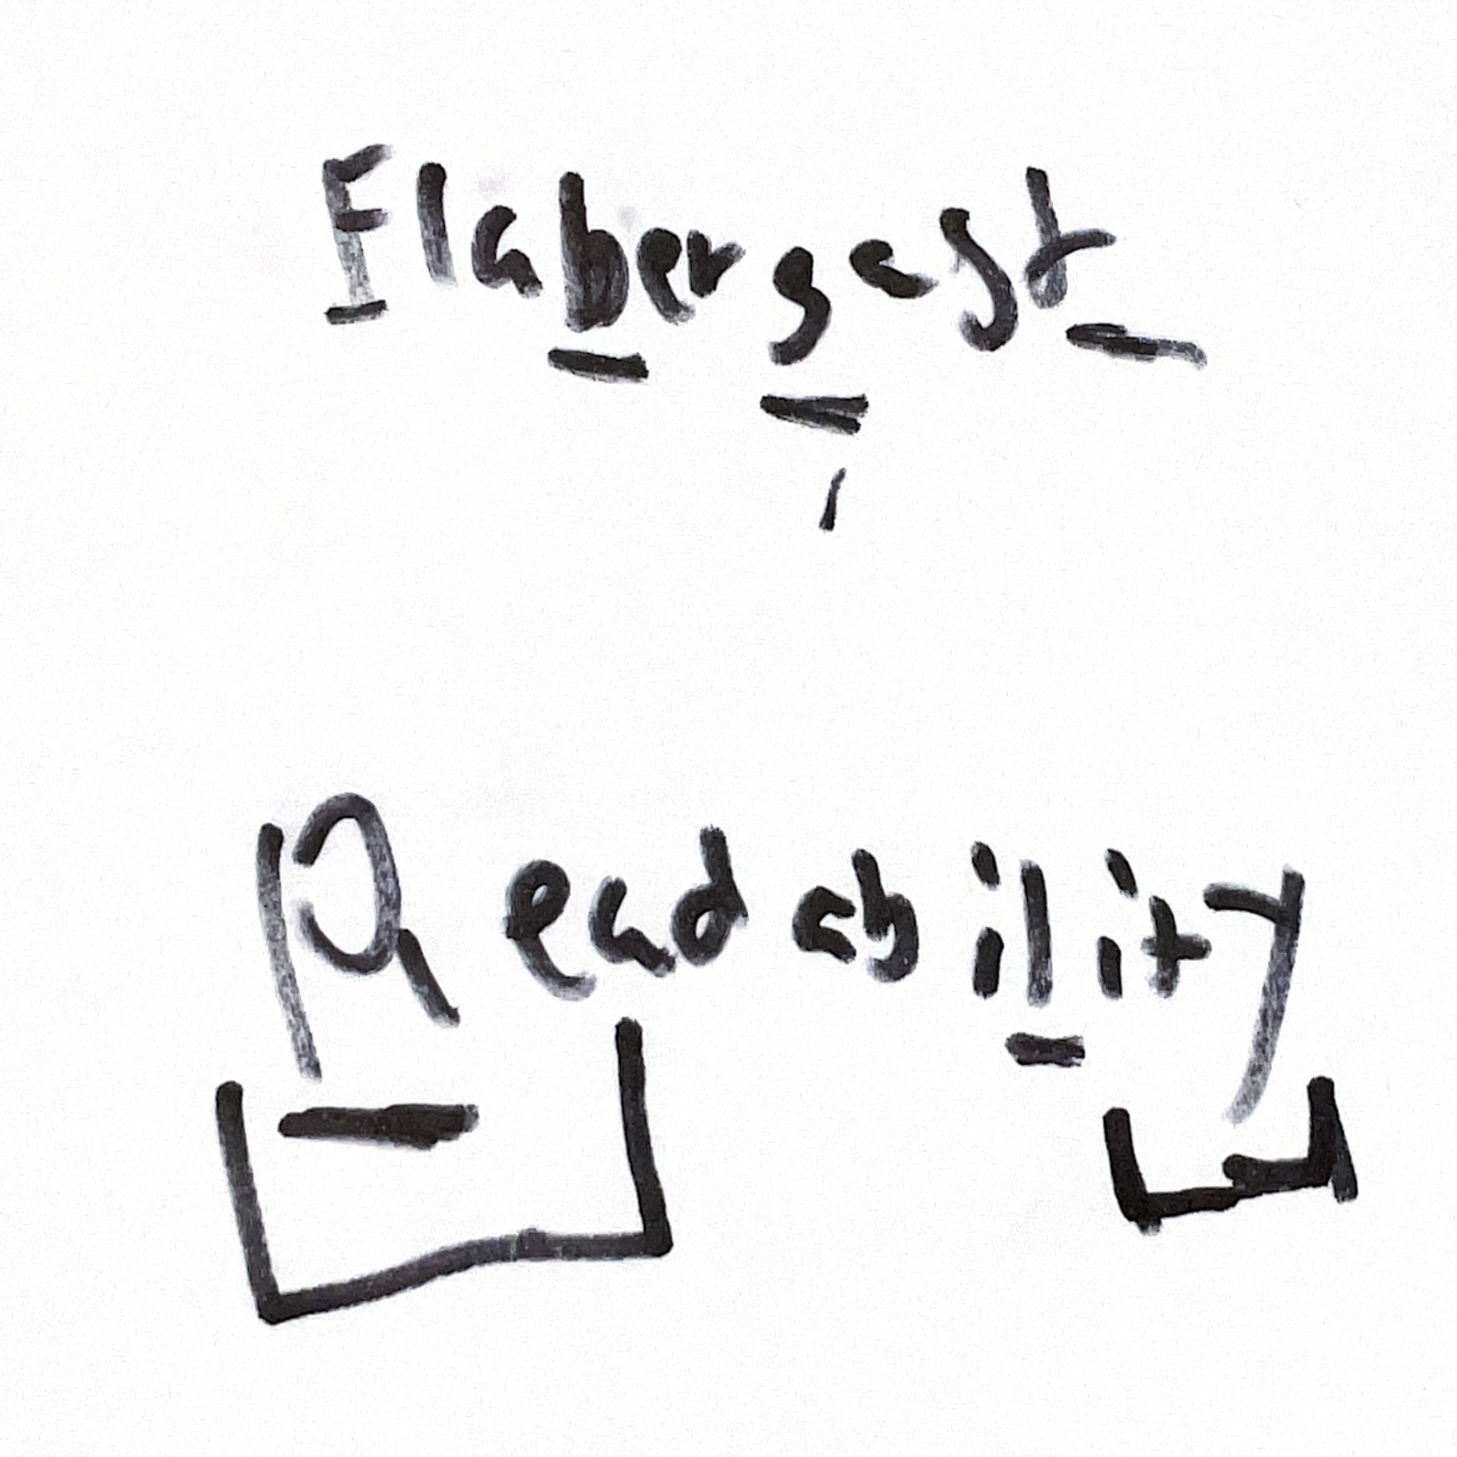 Flabergast
Readability